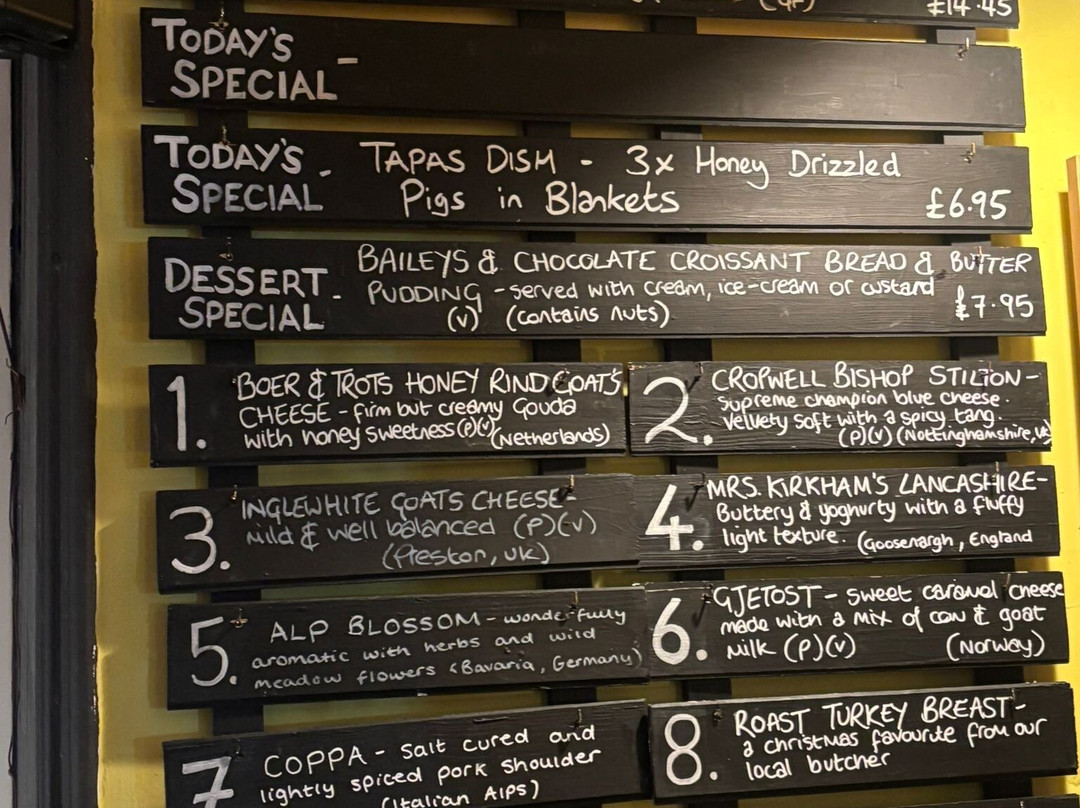 (GF) £14.45
TODAY'S
SPECIAL -
TODAY'S - TAPAS DISH - 3x Honey Drizzled
SPECIAL Pigs in Blankets £6.95
DESSERT - BAILEYS & CHOCOLATE CROISSANT BREAD & BUTTER
SPECIAL PUDDING - served with cream, ice-cream or custard £7.95
(V) (contains nuts)
1. BOER & TROTS HONEY RIND GOAT'S
CHEESE - firm but creamy Gouda
with honey sweetness (P)(V) (Netherlands)
2. CROPWELL BISHOP STILTON -
supreme champion blue cheese.
Velvety soft with a spicy tang.
(P)(V) (Nottinghamshire, UK)
3. INGLEWHITE GOATS CHEESE -
Mild & well balanced (P)(V)
(Preston, UK)
4. MRS. KIRKHAM'S LANCASHIRE -
Buttery & yoghurty with a fluffy
light texture. (Goosenargh, England
5. ALP BLOSSOM - wonderfully
aromatic with herbs and wild
meadow flowers (Bavaria, Germany)
6. GJETOST - sweet caramel cheese
made with a mix of cow & goat
Milk (P)(V) (Norway)
7 COPPA - salt cured and
lightly spiced pork shoulder
(Italian Alps)
8. ROAST TURKEY BREAST -
a christmas favourite from our
local butcher